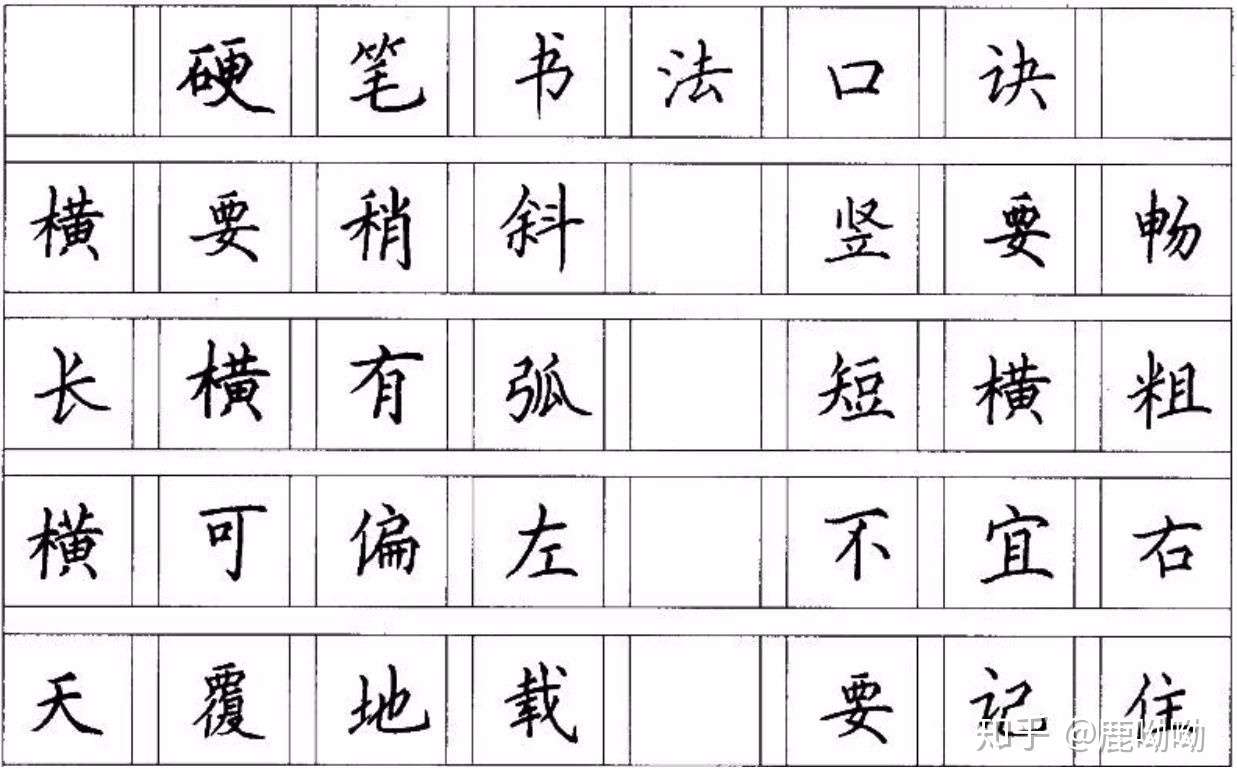 硬笔书法口诀
横要稍斜 竖要畅
长横有弧 短横粗
横可偏左 不宜右
天覆地载 要记住
知乎 @鹿呦呦